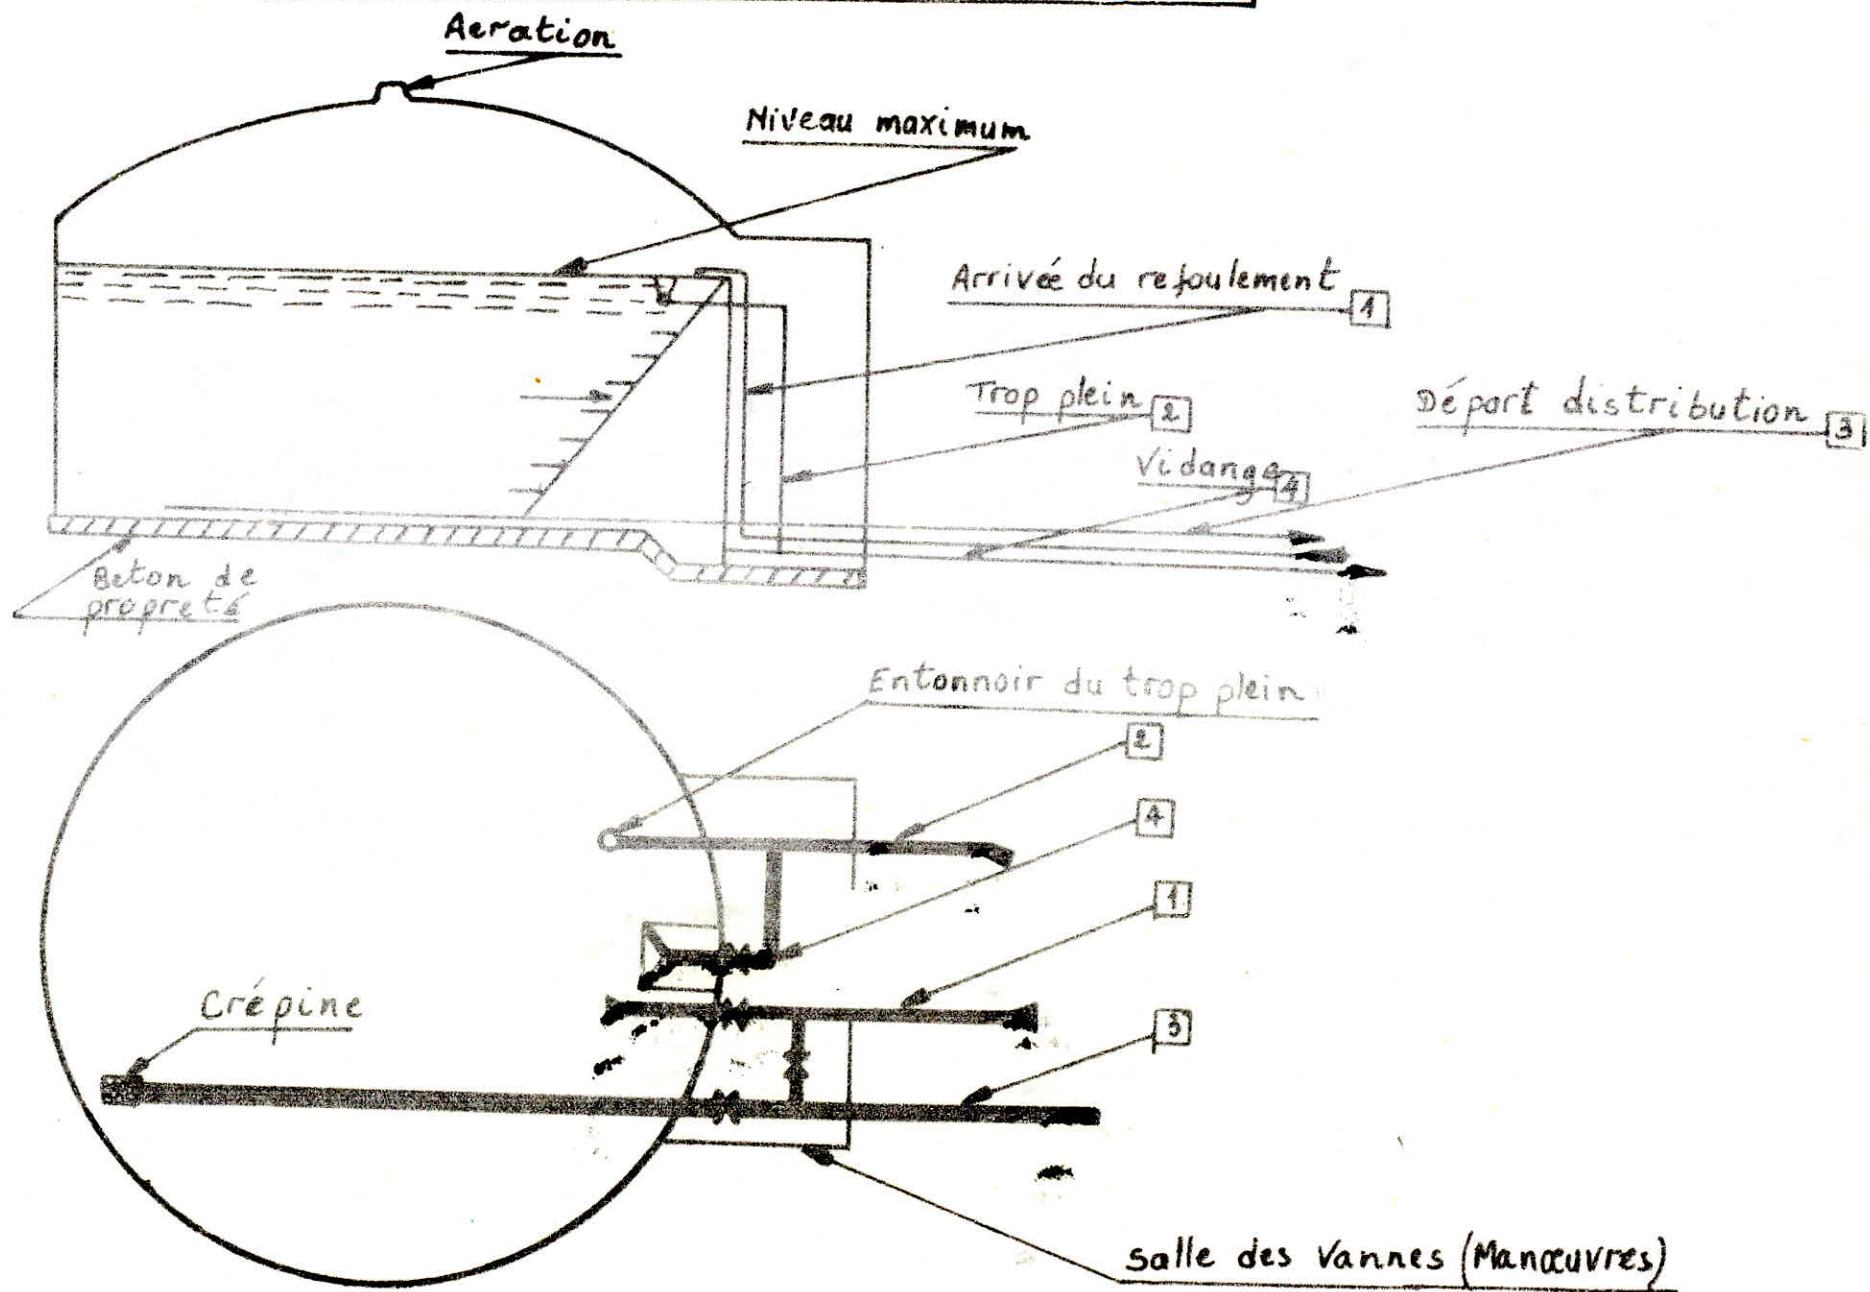 Aeration
Niveau maximum
Arrivée du refoulement
1
Trop plein 2
Départ distribution 3
Vidange 4
Beton de
propreté
Entonnoir du trop plein
2
4
1
Crépine
3
Salle des Vannes (Manœuvres)